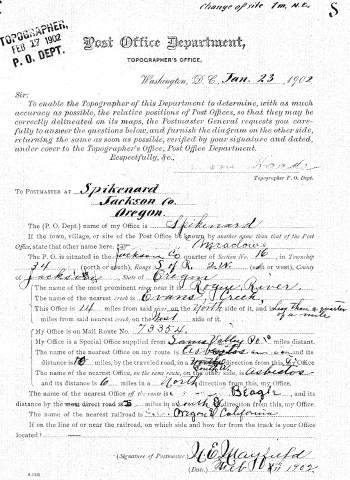 Change of site 7 m. N.E.
S
TOPOGRAPHER,
FEB 17 1902
P. O. DEPT.
Post Office Department,
TOPOGRAPHER'S OFFICE,
Washington, D.C. Jan. 23, 1902
Sir:
To enable the Topographer of this Department to determine, with as much
accuracy as possible, the relative positions of Post Offices, so that they may be
correctly delineated on its maps, the Postmaster General requests you care-
fully to answer the questions below, and furnish the diagram on the other side,
returning the same as soon as possible, verified by your signature and dated,
under cover to the Topographer's Office, Post Office Department.
Respectfully, &c.,
Topographer P. O. Dept.
TO POSTMASTER AT Spikenard
Jackson Co.
Oregon.
The (P. O. Dept.) name of my Office is Spikenard
If the town, village, or site of the Post Office be known by another name than that of the Post
Office, state that other name here: Meadows
The P. O. is situated in the quarter of Section No. 16, in Township
34 (north or south), Range 2 W (east or west), County
of Jackson, State of Oregon
The name of the most prominent river near it is Rogue River.
The name of the nearest creek is Evans Creek.
This Office is 14 miles from said river, on the North side of it, and less than a quarter of a mile
miles from said nearest creek, on the West side of it.
My Office is on Mail Route No. 73354.
My Office is a Special Office supplied from Sams Valley 10 miles distant.
The name of the nearest Office on my route is Asbestos and its
distance is 10 miles, by the traveled road, in a direction from this my Office.
The name of the nearest Office, on the same route, on the other side, is Asbestos
and its distance is 6 miles in a North direction from this, my Office.
The name of the nearest Office off the route is Beagle, and its
distance by the most direct road is 5 miles in a South direction from this, my Office.
The name of the nearest railroad is Oregon & California
If on the line of or near the railroad, on which side and how far from the track is your Office
located?
(Signature of Postmaster.) N. E. Mayfield
(Date.) Feb 1902.